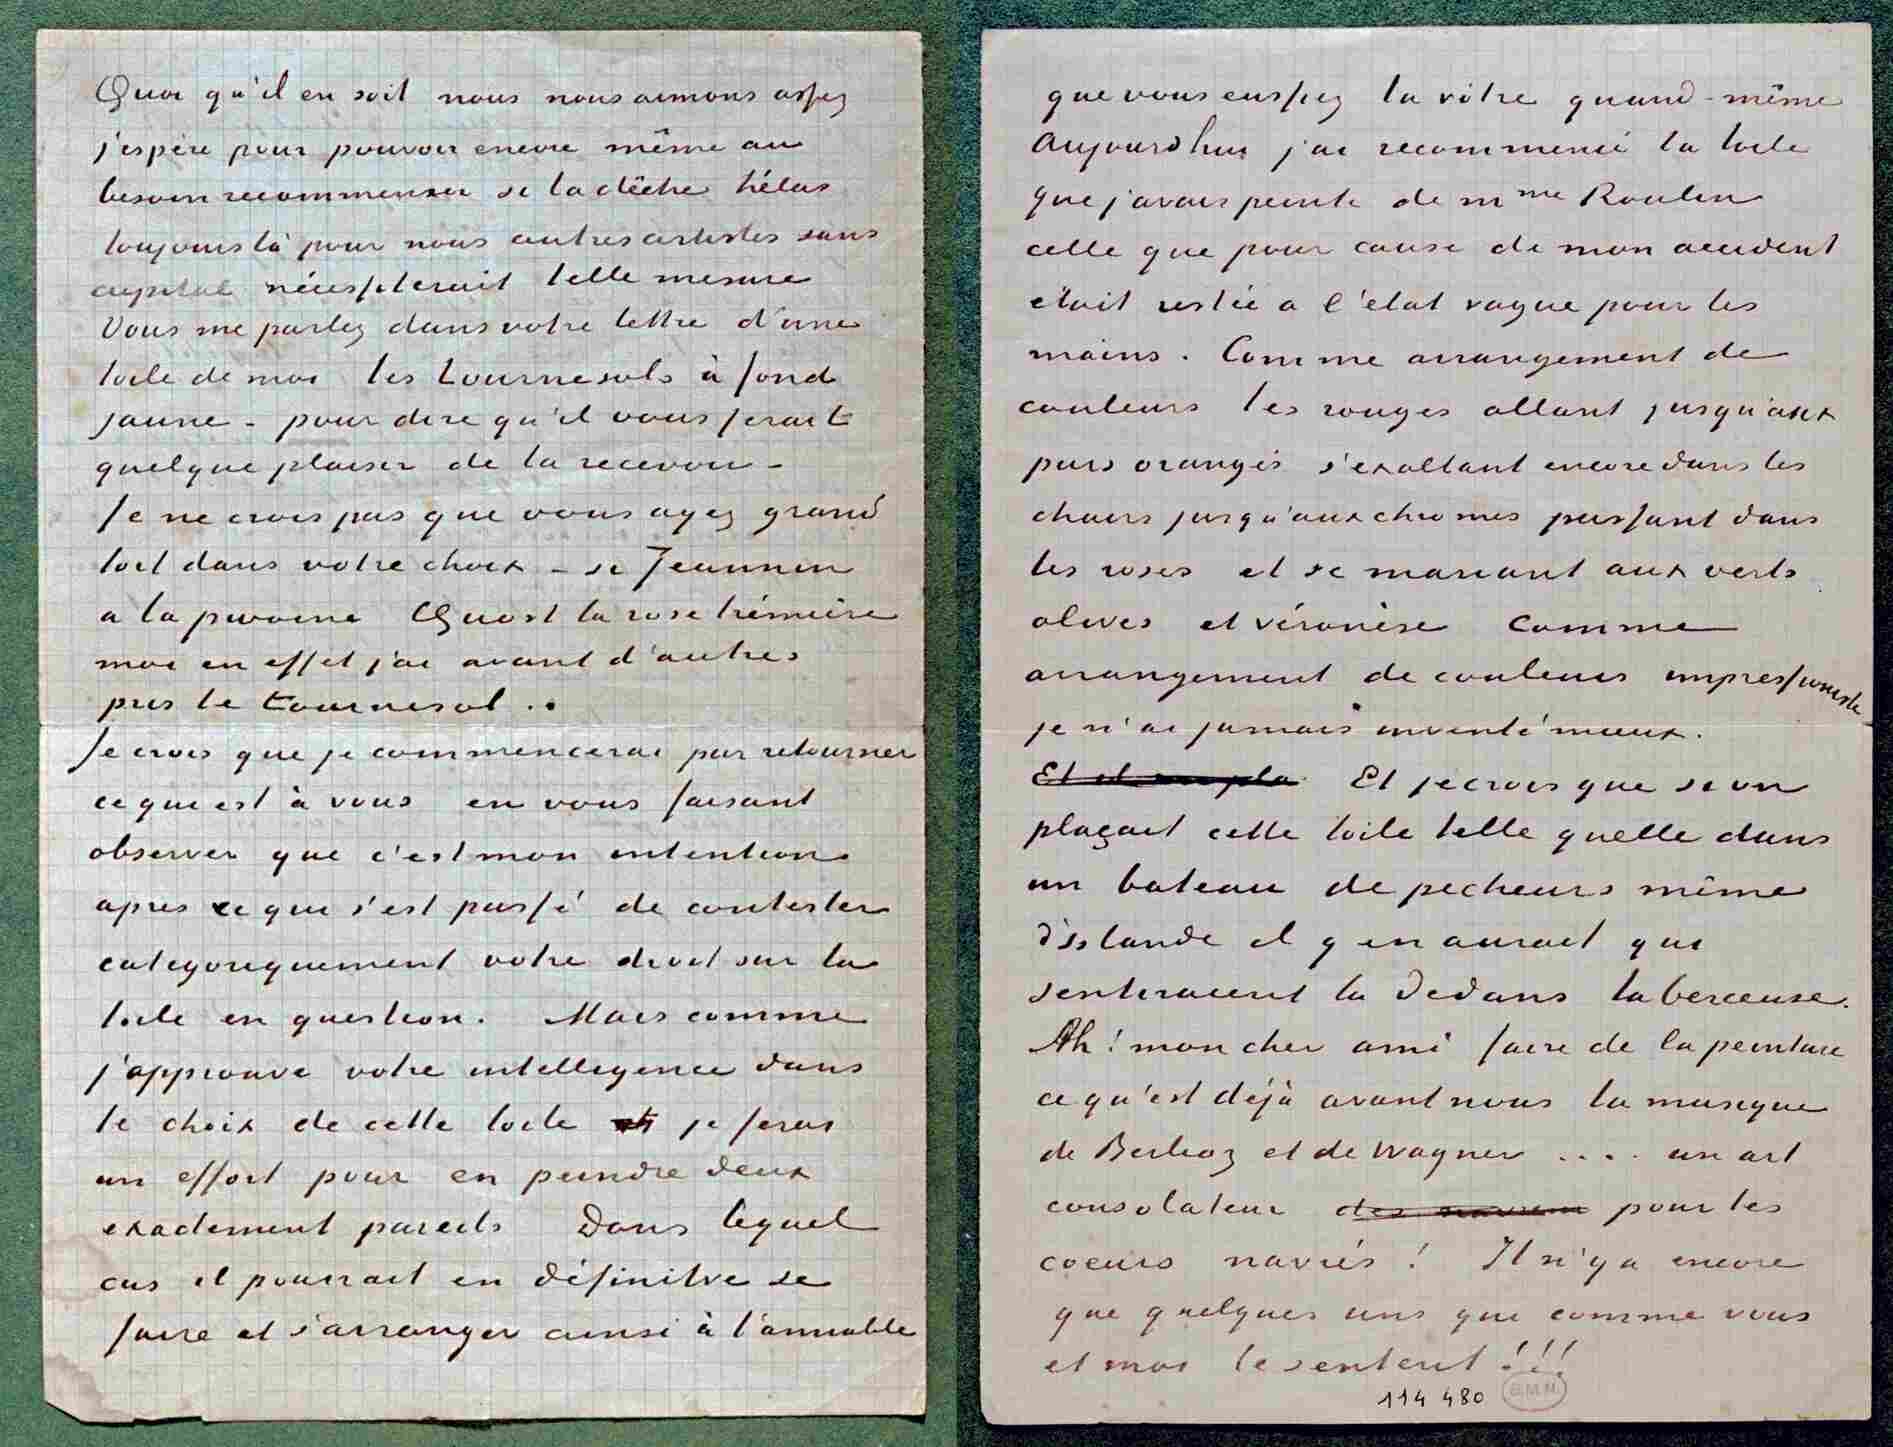 Quoi qu'il en soit nous nous aimons assez
j'espère pour pouvoir encore même au
besoin recommencer si la dêche hélas
toujours là pour nous autres artistes sans
capital nécessiterait telle mesure
Vous me parlez dans votre lettre d'une
toile de moi les tournesols à fond
jaune - pour dire qu'il vous ferait
quelque plaisir de la recevoir -
Je ne crois pas que vous ayez grand
tort dans votre choix - si Jeannin
a la pivoine Quost la rose trémière
moi en effet j'ai avant d'autres
pris le tournesol ..
Je crois que je commencerai par retourner
ce qui est à vous en vous faisant
observer que c'est mon intention
apres ce qui s'est passé de contester
categoriquement votre droit sur la
toile en question. Mais comme
j'approuve votre intelligence dans
le choix de cette toile je ferai
un effort pour en peindre deux
exactement pareils Dans lequel
cas il pourrait en définitive se
faire et s'arranger ainsi à l'amiable
que vous eussiez la vôtre quand-même
Aujourdhui j'ai recommencé la toile
que j'avais peinte de mme Roulin
celle que pour cause de mon accident
etait restée a l'etat vague pour les
mains. Comme arrangement de
couleurs les rouges allant jusqu'aux
purs orangés s'exaltant encore dans les
chairs jusqu'aux chromes passant dans
les roses et se mariant aux verts
olives et véronèse Comme
arrangement de couleurs impressioniste
je n'ai jamais inventé mieux.
Et je crois que si on
plaçait cette toile telle quelle dans
un bateau de pecheurs même
d'Islande il y en aurait qui
sentiraient là dedans la berceuse.
Ah! mon cher ami faire de la peinture
ce qu'est déjà avant nous la musique
de Berlioz et de Wagner .... un art
consolateur pour les
coeurs navrés! Il n'y a encore
que quelques uns qui comme vous
et moi le sentent!!!
114 480
B.M.N.